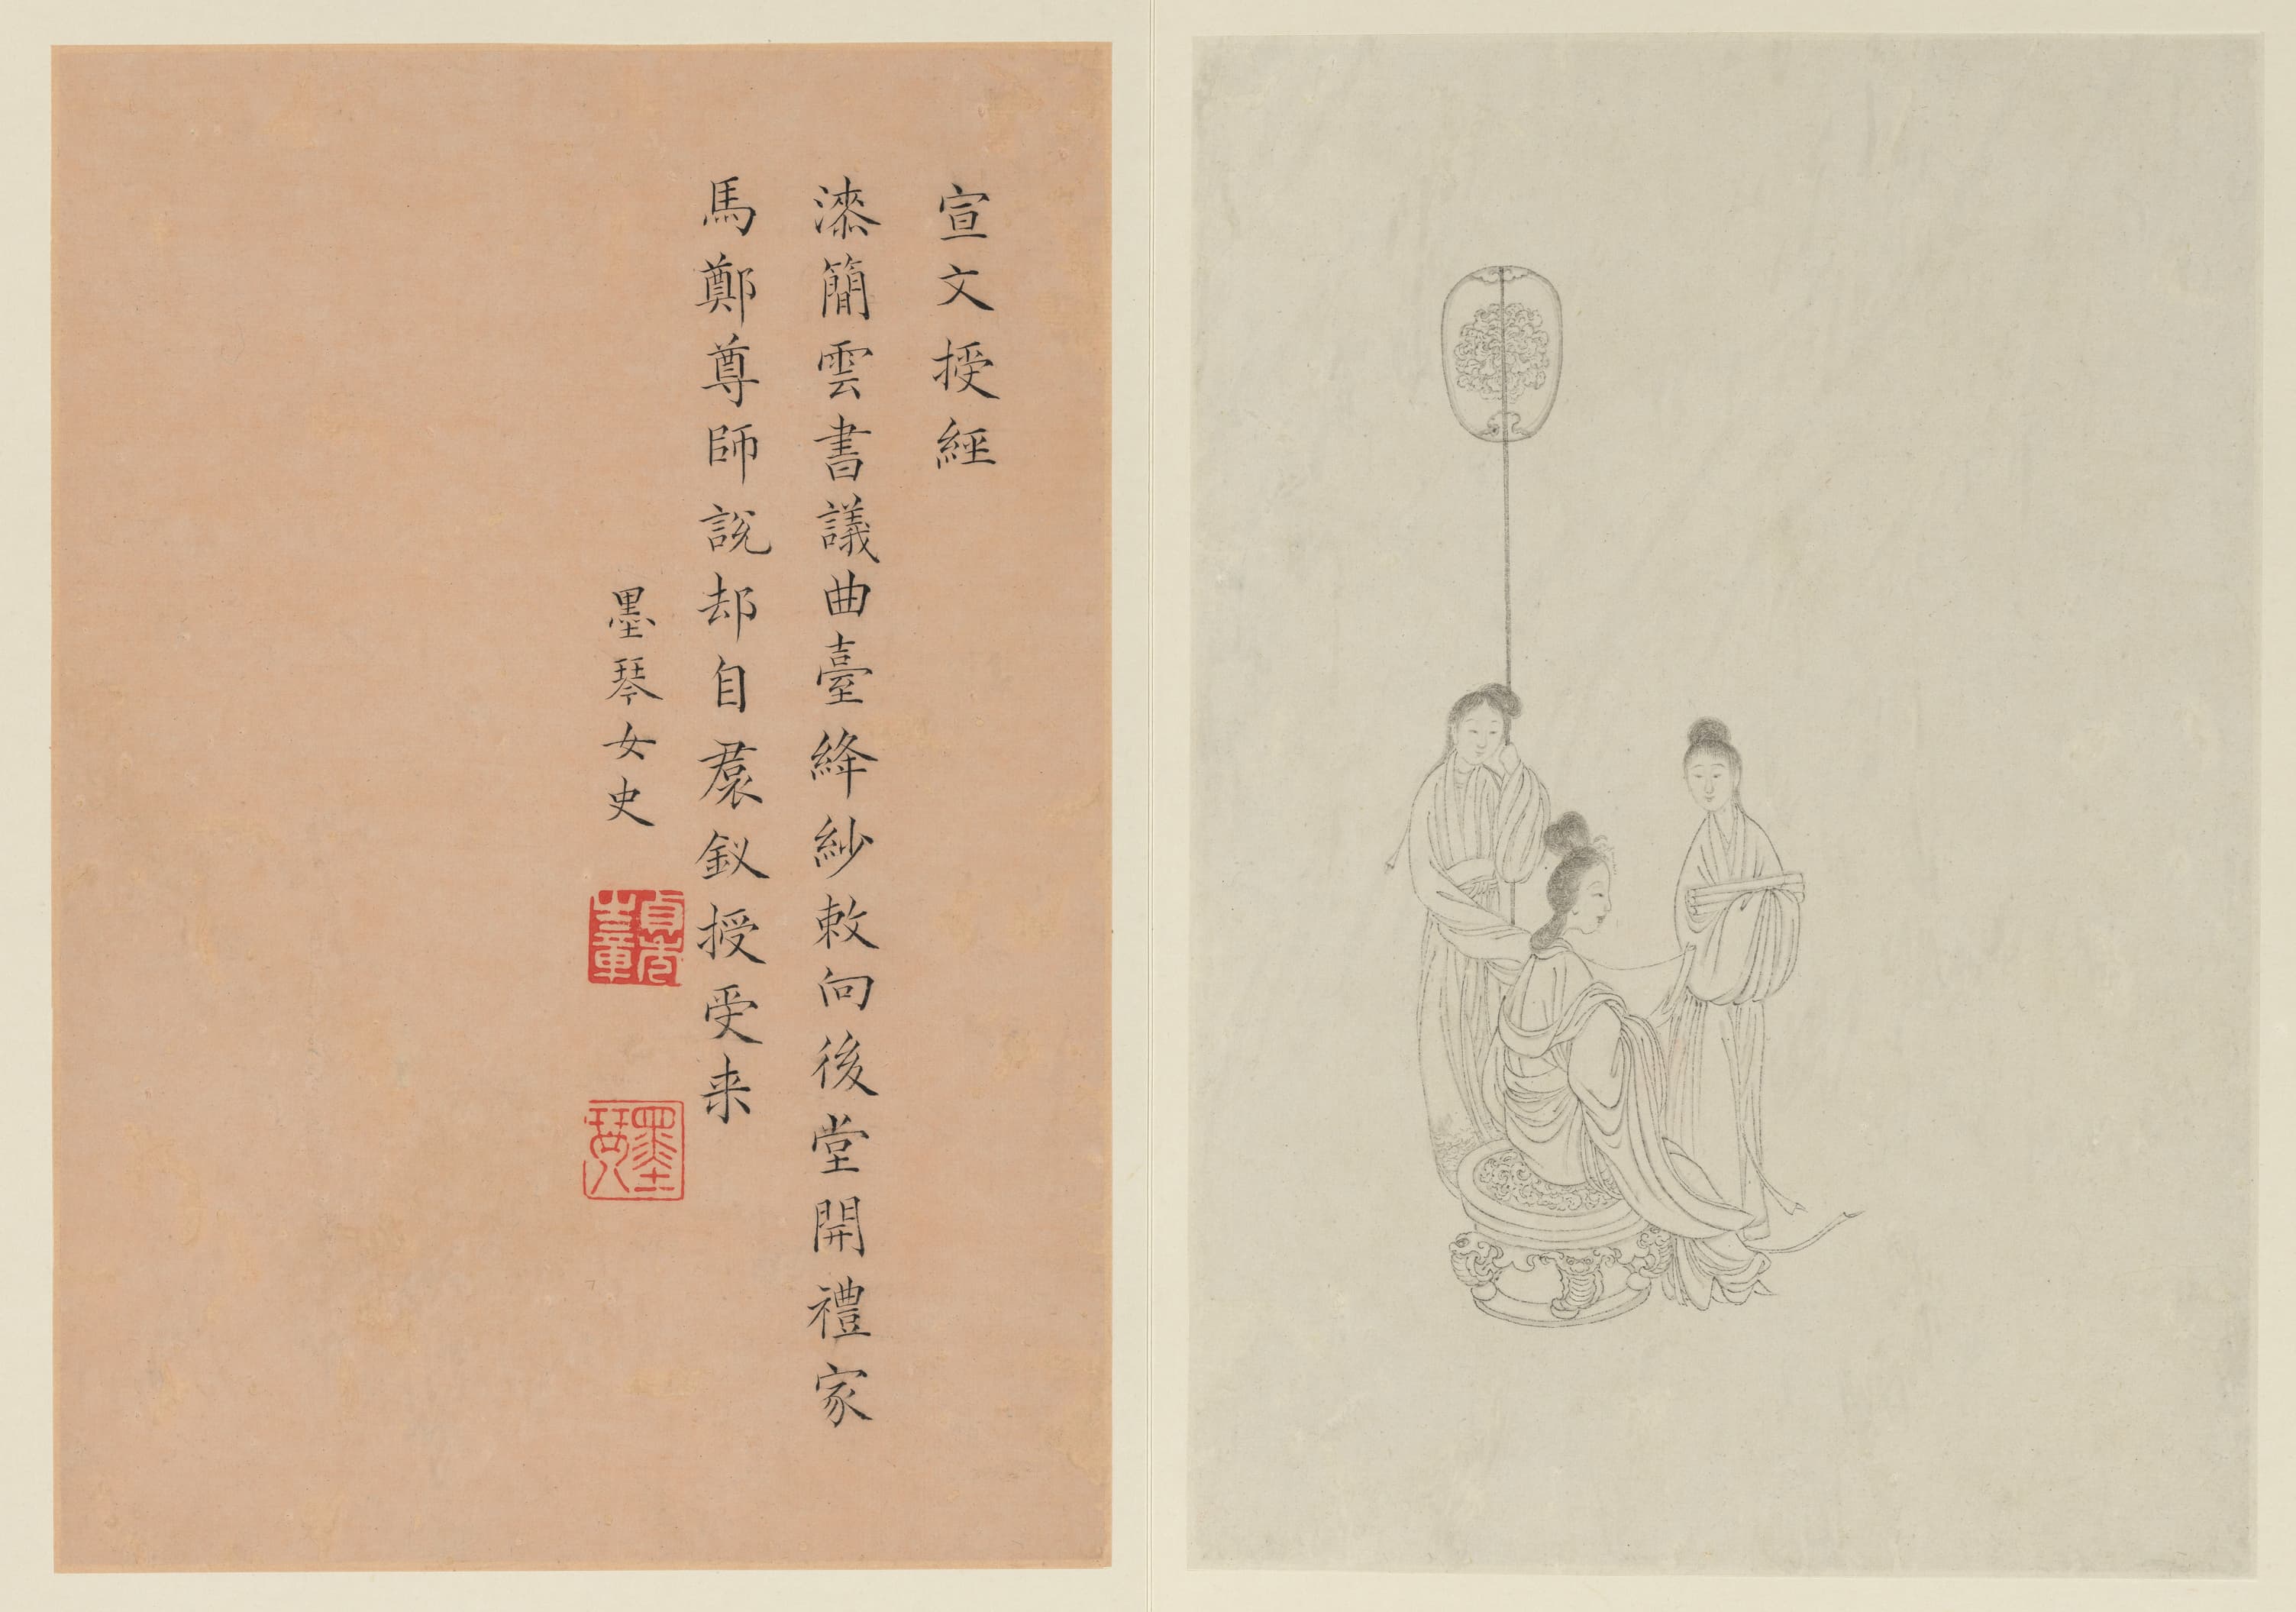 宣文授經
漆簡雲書議曲臺絳紗敕向後堂開禮家
馬鄭尊師說却自裠釵授受来
墨琴女史
貞秀之章
墨琴